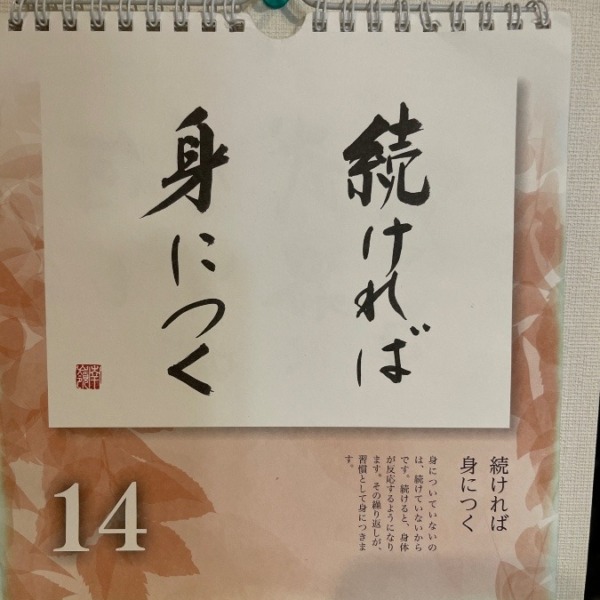 続ければ
身につく
続ければ
身につく
身についていないの
は、続けていないから
です。続けると、身体
が反応するようになり
ます。その繰り返しが、
習慣として身につきま
す。
14